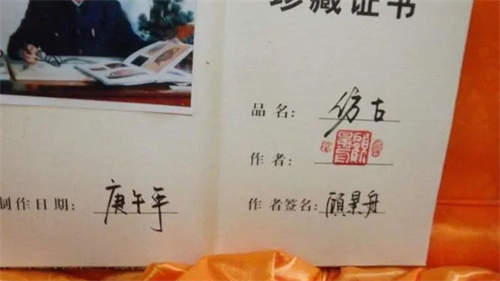 珍藏证书
品名: 仿古
作者:
制作日期: 庚午年
作者签名: 顾景舟